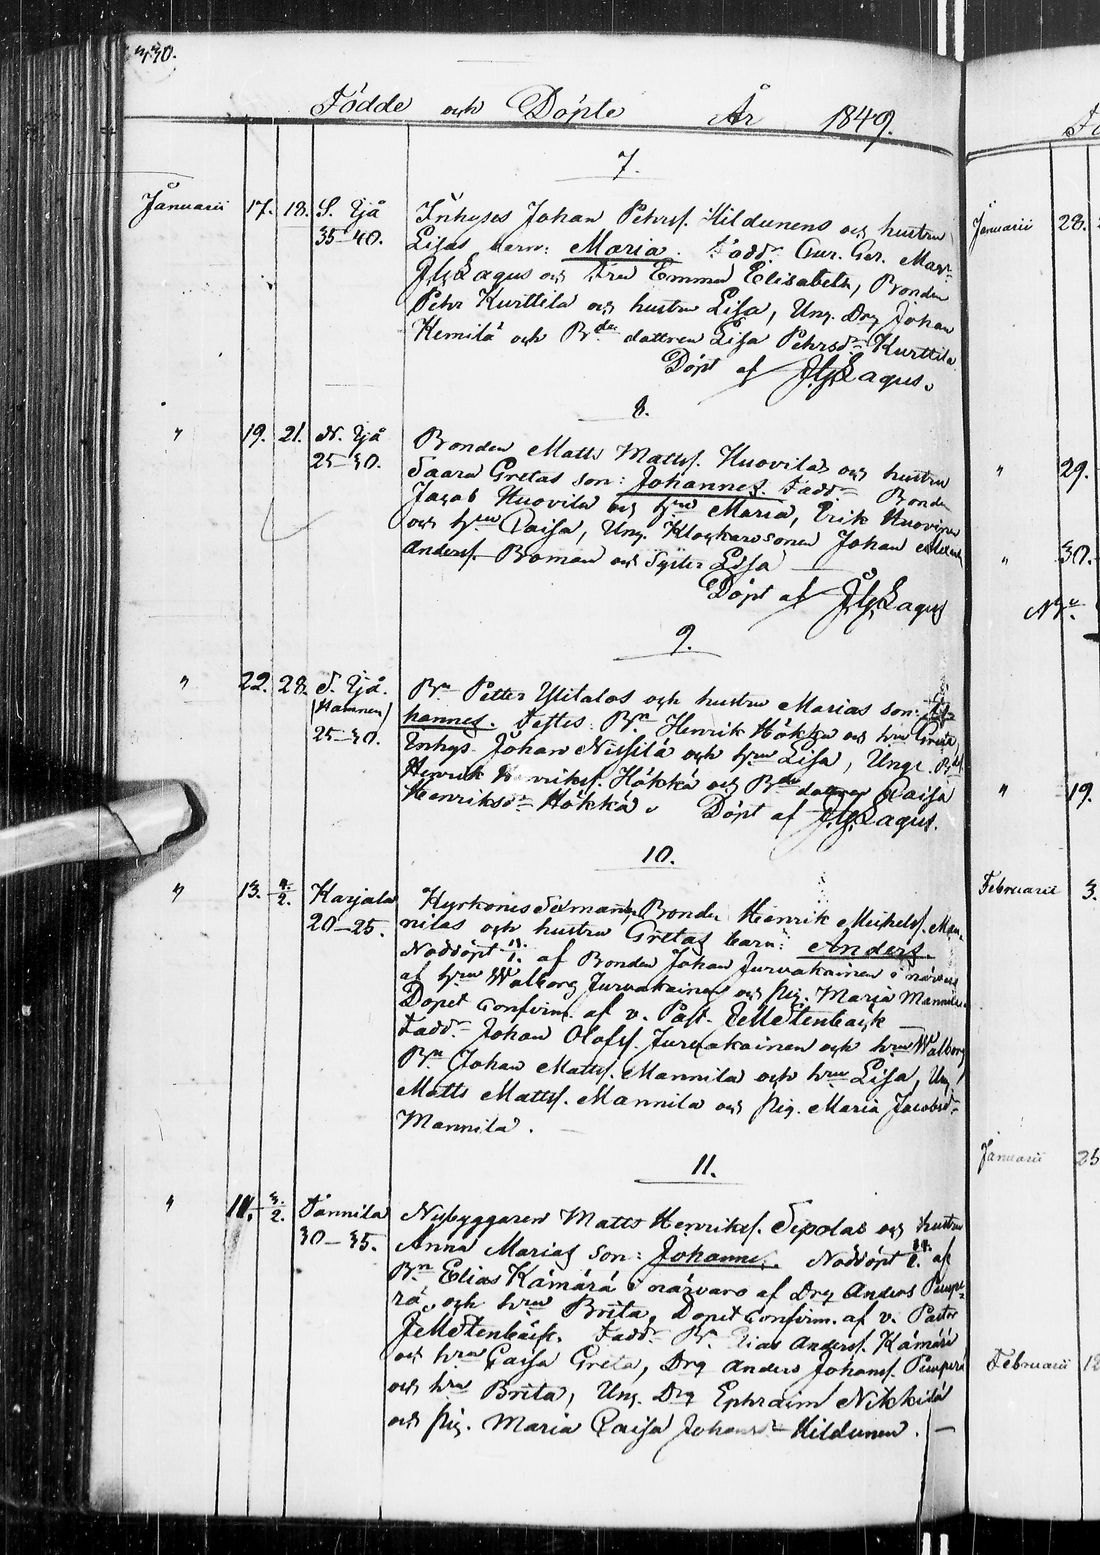 330.
Födde och Döpte År 1849.
7.
Januarii 17. 18. S. Ijå Inhyses Johan Pehrss. Hildunens och hustru
35–40. Lisas barn: Maria Fadd. Cur. Ger. Mag.
J.G. Lagus och Fru Emma Elisabeth, Bonden
Pehr Kurttila och hustru Lisa, Ung. Drg Johan
Kemilä och Bde dottren Lisa Pehrsdr Kurttila
Döpt af J.G. Lagus.
8.
" 19. 21. N. Ijå Bonden Matts Mattss. Huovilas och hustru
25–30. Saara Gretas son: Johannes. Fadd. Bonden
Jacob Huovila och hru Maria, Erik Huovinen
och hru Caisa, Ung. Klockaresonen Johan
Anderss. Boman och Syster Lisa
Döpt af J.G. Lagus
9.
" 22. 28. S. Ijå. Bn Petter Ylitalos och hustru Marias son: Jo-
(Hamnen) hannes. Testes. Bn Henrik Hökkä och hru Greta,
25–30. Inhys. Johan Nissilä och hru Lisa, Ungl. Bds.
Henrik Henrikss. Hökkä och Bde dottren Caisa
Henriksdr Hökkä. Döpt af J.G. Lagus.
10.
" 13. 4./2. Karjala Kyrkones Bonden Henrik Michelss. Man-
20–25. nilas och hustru Gretas barn: Anders.
Nöddöpt af Bonden Johan Jurvakainen i närvaro
af hru Walborg Jurvakainen och pig. Maria Mannila.
Dopet confirm. af v. Past. Stenbäck
Fadd. Johan Olofss. Jurvakainen och hru Walborg
Bn Johan Mattss. Mannila och hru Lisa, Ung.
Matts Mattss. Mannila och pig. Maria Jacobsdr
Mannila.
11.
" 11. 3./2. Tannila Nybyggaren Matts Henrikss. Sipolas och hustru
30–35. Anna Marias son: Johannes. Nöddöpt af
Bn Elias Kämärä i närvaro af Drg Anders Puupe-
rä och hru Brita, Dopet confirm. af v. Pastor
Stenbäck. Fadd. Bn Elias Anderss. Kämärä
och hru Caisa Greta, Drg Anders Johanss. Puuperä
och hru Brita, Ung. Drg Ephraim Nikkilä
och pig. Maria Caisa Johansdr Hildunen.
Januarii 28.
" 29.
" 30.
" 19.
Februarii 3.
Januarii 25
Februarii